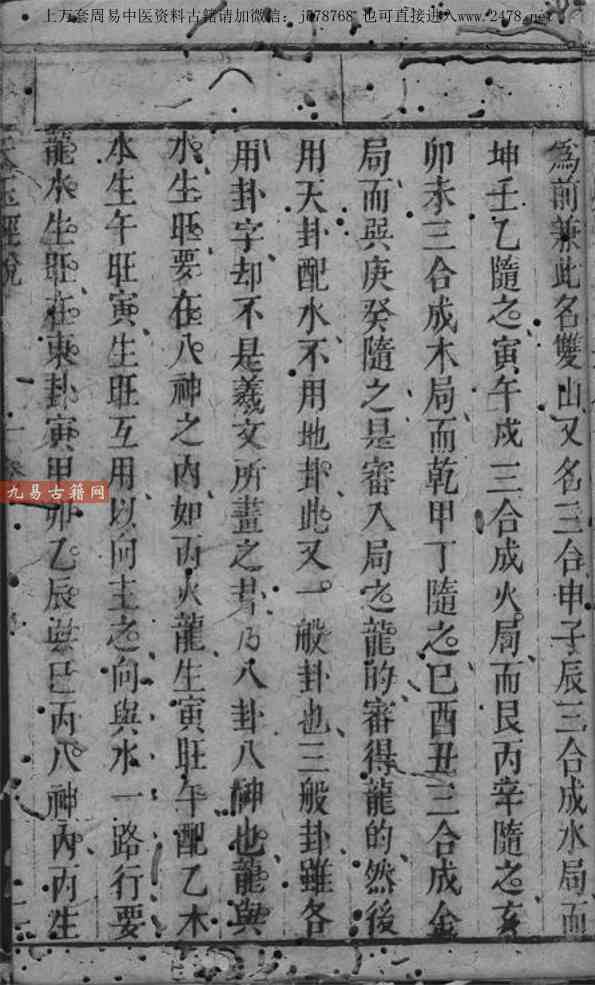 上万套周易中医资料古籍请加微信：j078768 也可直接进入www.2478.net
為前兼此名雙山又名三合申子辰三合成水局而
坤壬乙隨之寅午戌三合成火局而艮丙辛隨之亥
卯未三合成木局而乾甲丁隨之巳酉丑三合成金
局而巽庚癸隨之是審入局之龍的審得龍的然後
用天卦配水不用地卦此又一般卦也三般卦雖各
用卦字却不是羲文所畫之卦乃八卦八神也龍與
水生旺要在八神之内如丙火龍生寅旺午配乙木
水生午旺寅生旺互用以向主之向與水一路行要
龍水生旺在東卦寅甲卯乙辰巽巳丙八神内丙生
玉經說
九易古籍网